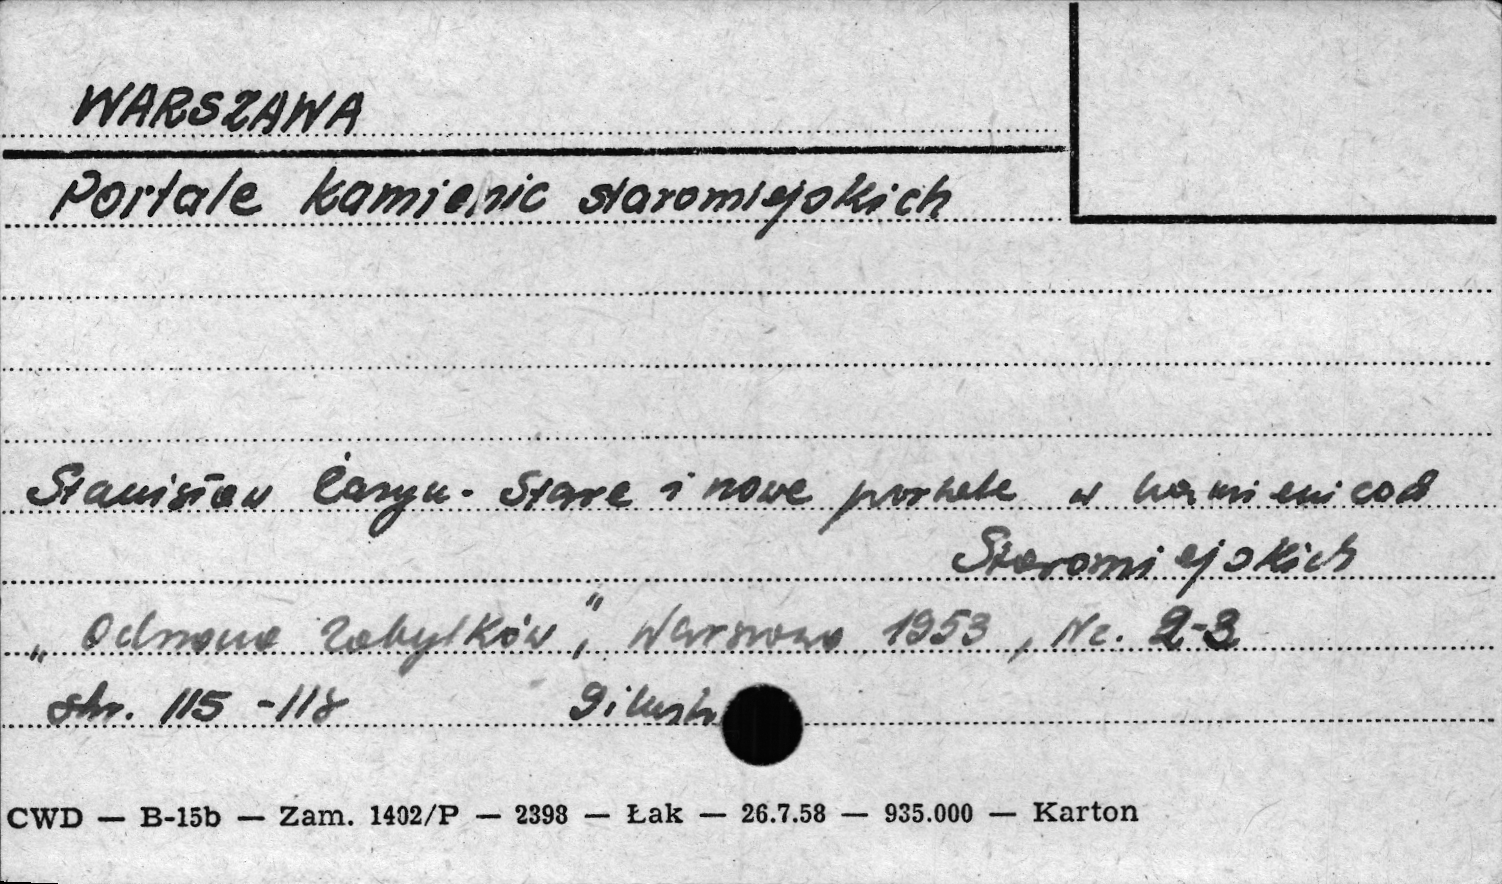 WARSZAWA
Portale kamienic staromiejskich
Stanisław Żaryn. Stare i nowe portale w kamienicach
Staromiejskich
„Ochrona Zabytków”, Warszawa 1953, Nr. 2-3
str. 115-118 9 ilustr
CWD — B-15b — Zam. 1402/P — 2398 — Łak — 26.7.58 — 935.000 — Karton